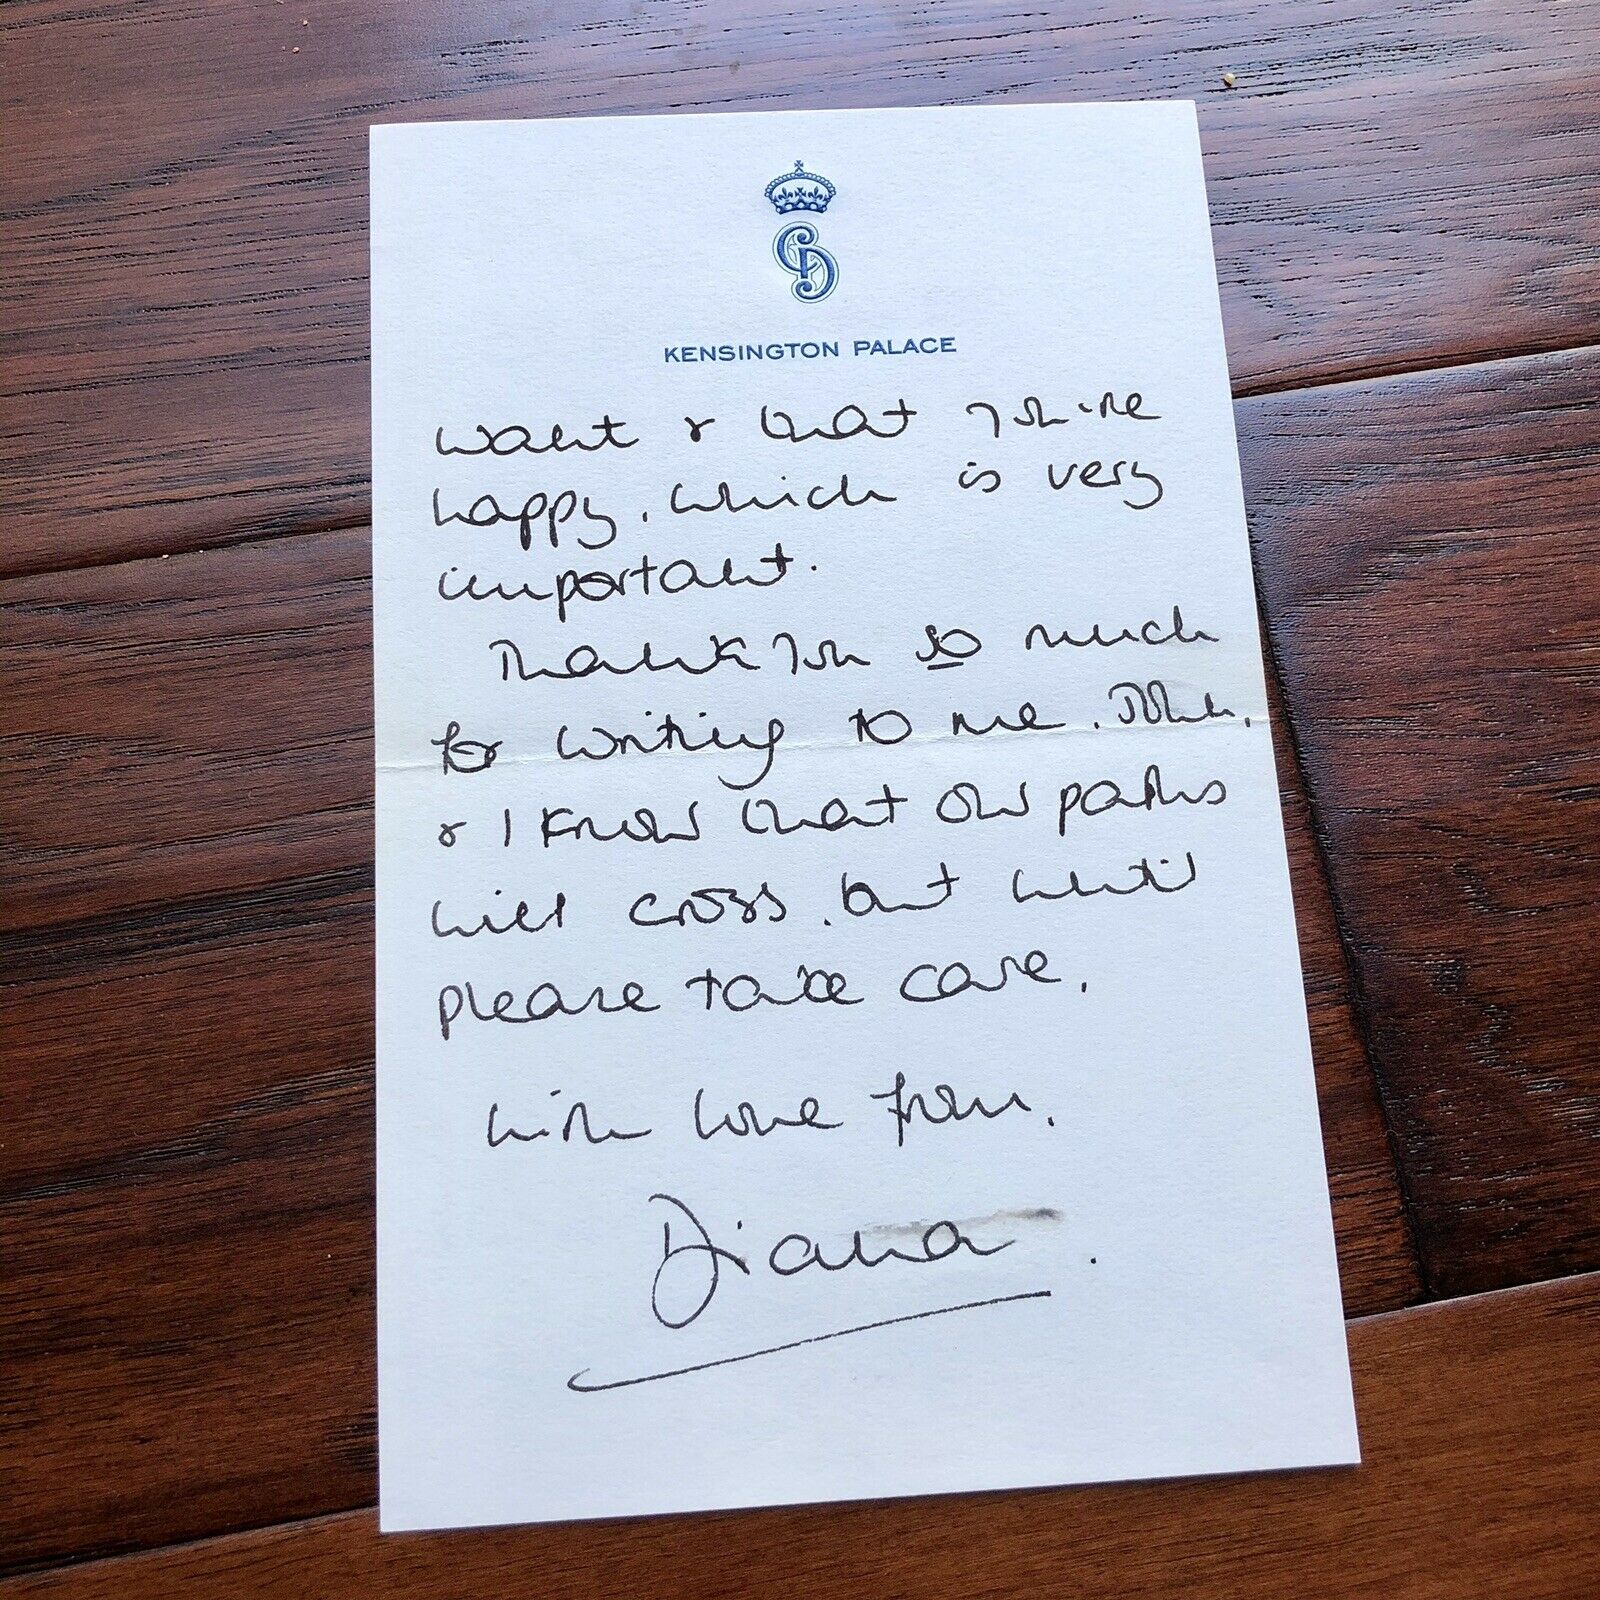 KENSINGTON PALACE
want & that you're
happy, which is very
important.
Thank you so much
for writing to me, John,
& I know that our paths
will cross, but until
please take care,
with love from,
Diana.